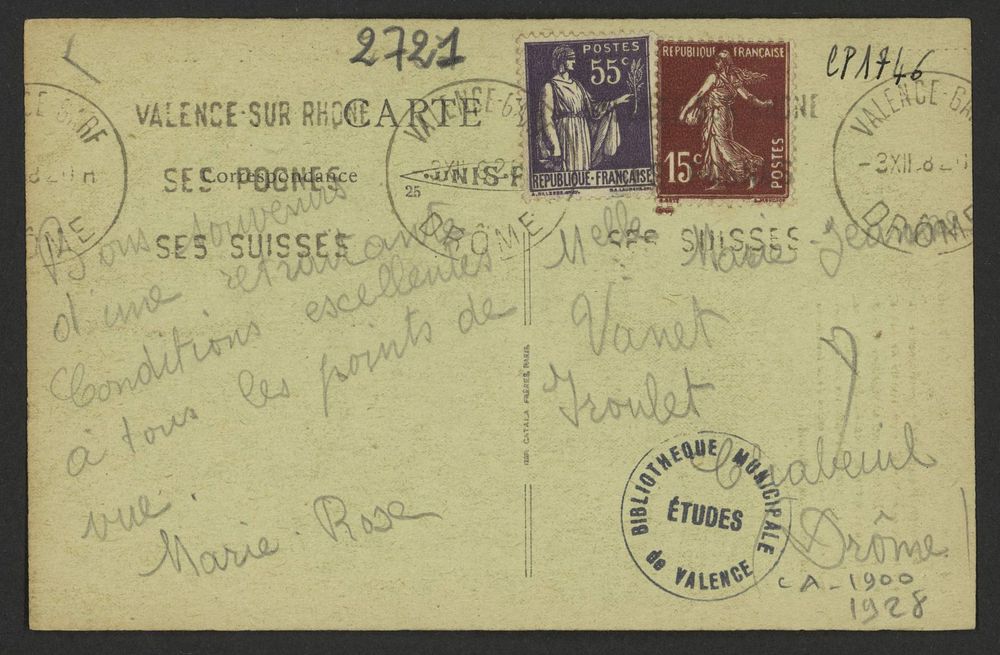 2721
CP1746
CARTE
Correspondance
25
VALENCE-SUR RHONE
SES POGNES
SES SUISSES
VALENCE-GARE
DRÔME
UNIS-F
POSTES
55c
REPUBLIQUE-FRANÇAISE
REPUBLIQUE FRANÇAISE
15c
POSTES
SES SUISSES
VALENCE-GA
-3XII
DRÔME
Bons souvenirs
d'une retraitante
Conditions excellentes
à tous les points de
vue.
Marie-Rose
Melle Marie-Jeanne
Vanet
Chabeuil
Drôme
IMP. CATALA FRÈRES, PARIS
BIBLIOTHEQUE MUNICIPALE
ÉTUDES
de VALENCE
CA-1900
1928